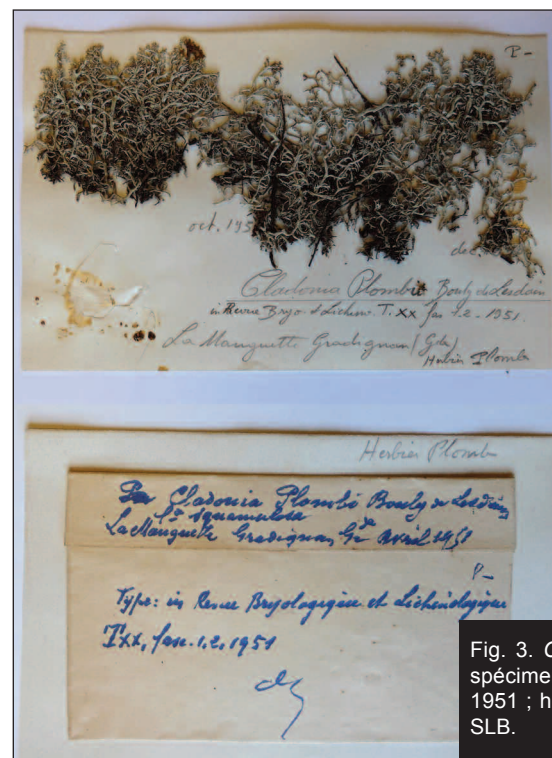 P-
oct. 195
dec.
Cladonia Plombii Bouly de Lesdain
in Revue Bryo. et Lichen. T. XX fas 1.2 - 1951.
La Manguette Gradignan (Gde)
Herbier Plomb
Herbier Plomb
Cladonia Plombii Bouly de Lesdain
squamulosa
La Manguette Gradignan, Gde Avril 1951
P-
Type: in Revue Bryologique et Lichénologique
TXX, fasc. 1.2, 1951
Fig. 3. C
spécime
1951 ; h
SLB.